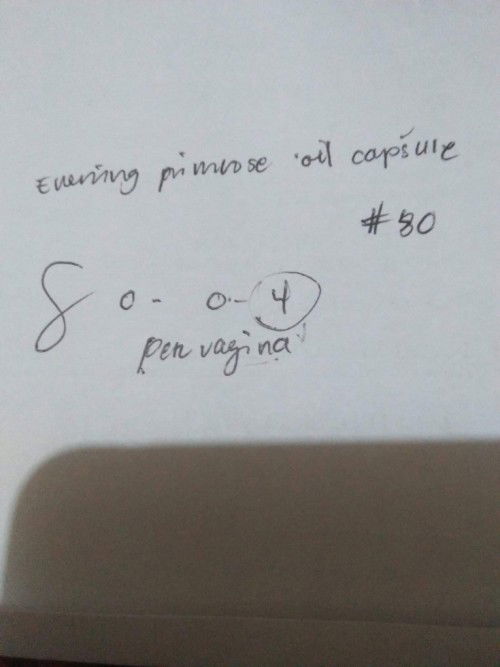 Evening primrose oil capsule
#80
0 - 0 - 4
per vagina